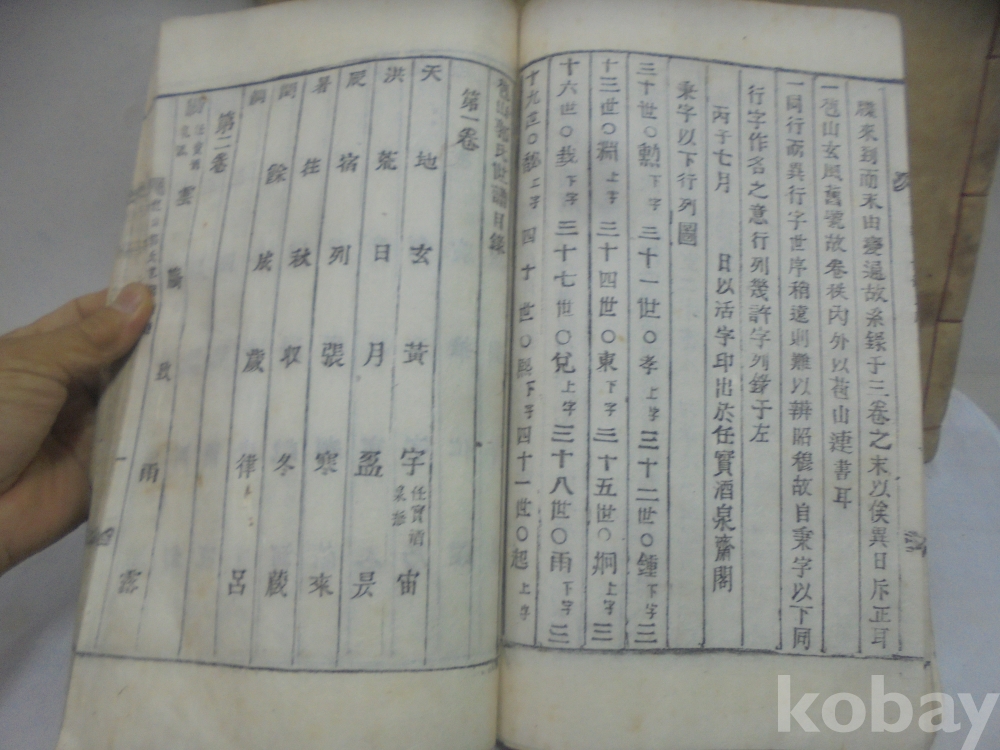 牒來到而末由變通故系錄于三卷之末以俟異日斥正耳
一苞山玄風舊號故卷秩內外以苞山連書耳
一同行而異行字世序稍遠則難以辨昭穆故自秉字以下同
行字作名之意行列幾許字列錄于左
丙子七月 日以活字印出於任實酒泉齋閣
秉字以下行列圖
三十世○勲下字三十一世○孝上字三十二世○鍾下字三
十三世○淵上字三十四世○東下字三十五世○炯上字三
十六世○載下字三十七世○兌上字三十八世○雨下字三
十九世○上字四十世○熙下字四十一世○起上字
苞山郭氏世譜目錄
第一卷
天地玄黃字任實酒泉派宙
洪荒日月盈昃
宿列張寒來
暑往秋收冬藏
閏餘成歲律呂
第二卷
雲騰致雨露
kobay